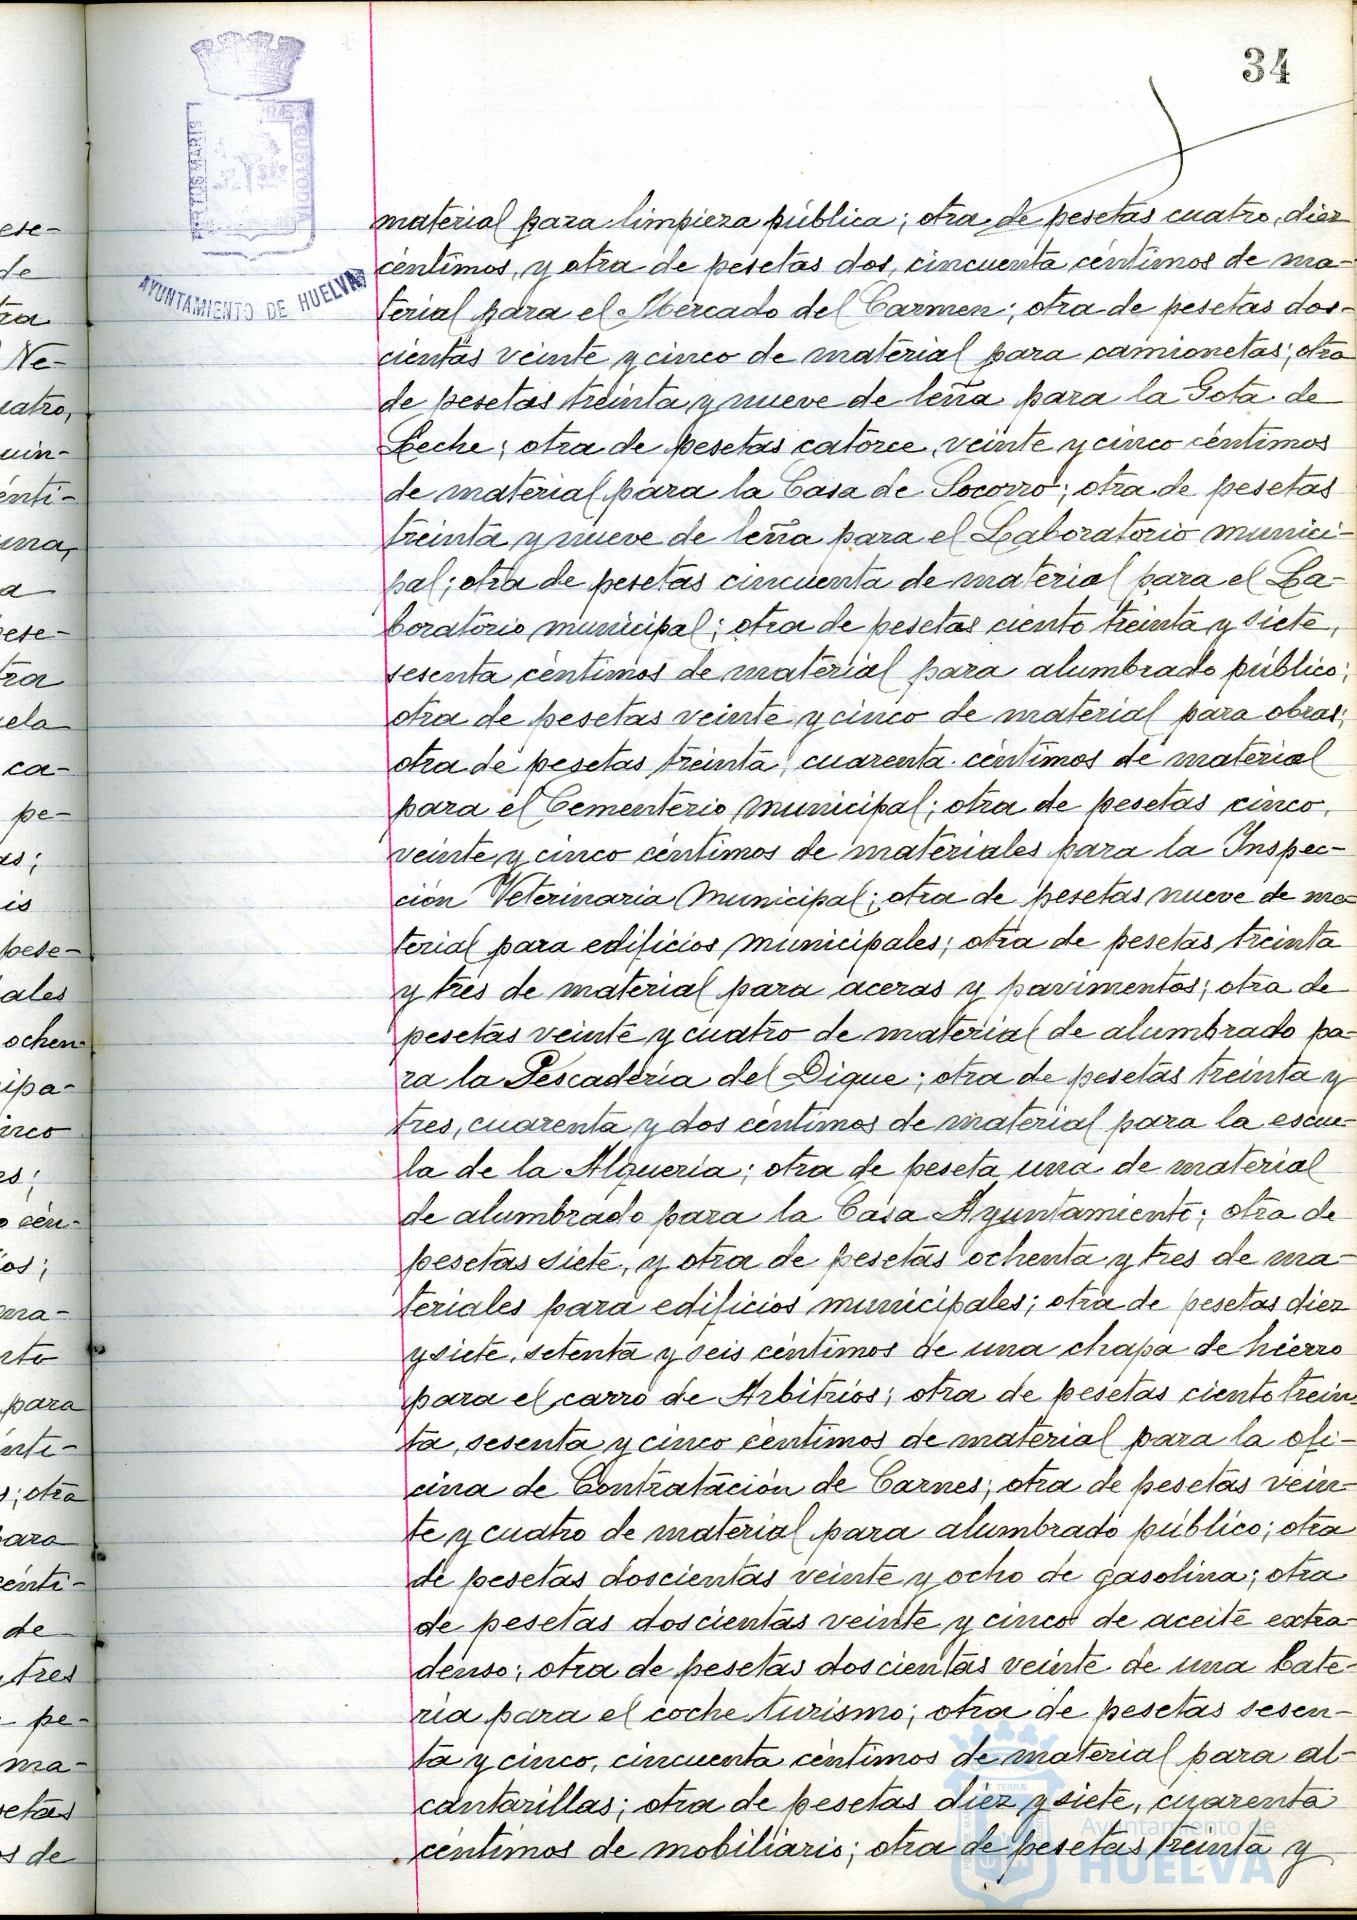 34
PORTUS MARIS
TERRÆ CUSTODIA
AYUNTAMIENTO DE HUELVA
material para limpieza pública; otra de pesetas cuatro, diez
céntimos, y otra de pesetas dos, cincuenta céntimos de ma-
terial para el Mercado del Carmen; otra de pesetas dos-
cientas veinte y cinco de material para camionetas; otra
de pesetas treinta y nueve de leña para la Gota de
Leche; otra de pesetas catorce, veinte y cinco céntimos
de material para la Casa de Socorro; otra de pesetas
treinta y nueve de leña para el Laboratorio munici-
pal; otra de pesetas cincuenta de material para el La-
boratorio municipal; otra de pesetas ciento treinta y siete,
sesenta céntimos de material para alumbrado público;
otra de pesetas veinte y cinco de material para obras;
otra de pesetas treinta, cuarenta céntimos de material
para el Cementerio municipal; otra de pesetas cinco,
veinte y cinco céntimos de materiales para la Inspec-
ción Veterinaria Municipal; otra de pesetas nueve de ma-
terial para edificios municipales; otra de pesetas treinta
y tres de material para aceras y pavimentos; otra de
pesetas veinte y cuatro de material de alumbrado pa-
ra la Pescadería del Dique; otra de pesetas treinta y
tres, cuarenta y dos céntimos de material para la escue-
la de la Alquería; otra de peseta una de material
de alumbrado para la Casa Ayuntamiento; otra de
pesetas siete, y otra de pesetas ochenta y tres de ma-
teriales para edificios municipales; otra de pesetas diez
y siete, setenta y seis céntimos de una chapa de hierro
para el carro de Arbitrios; otra de pesetas ciento trein-
ta, sesenta y cinco céntimos de material para la ofi-
cina de Contratación de Carnes; otra de pesetas vein-
te y cuatro de material para alumbrado público; otra
de pesetas doscientas veinte y ocho de gasolina; otra
de pesetas doscientas veinte y cinco de aceite extra-
denso; otra de pesetas doscientas veinte de una bate-
ría para el coche turismo; otra de pesetas sesen-
ta y cinco, cincuenta céntimos de material para al-
cantarillas; otra de pesetas diez y siete, cuarenta
céntimos de mobiliario; otra de pesetas treinta y
Ayuntamiento de
HUELVA